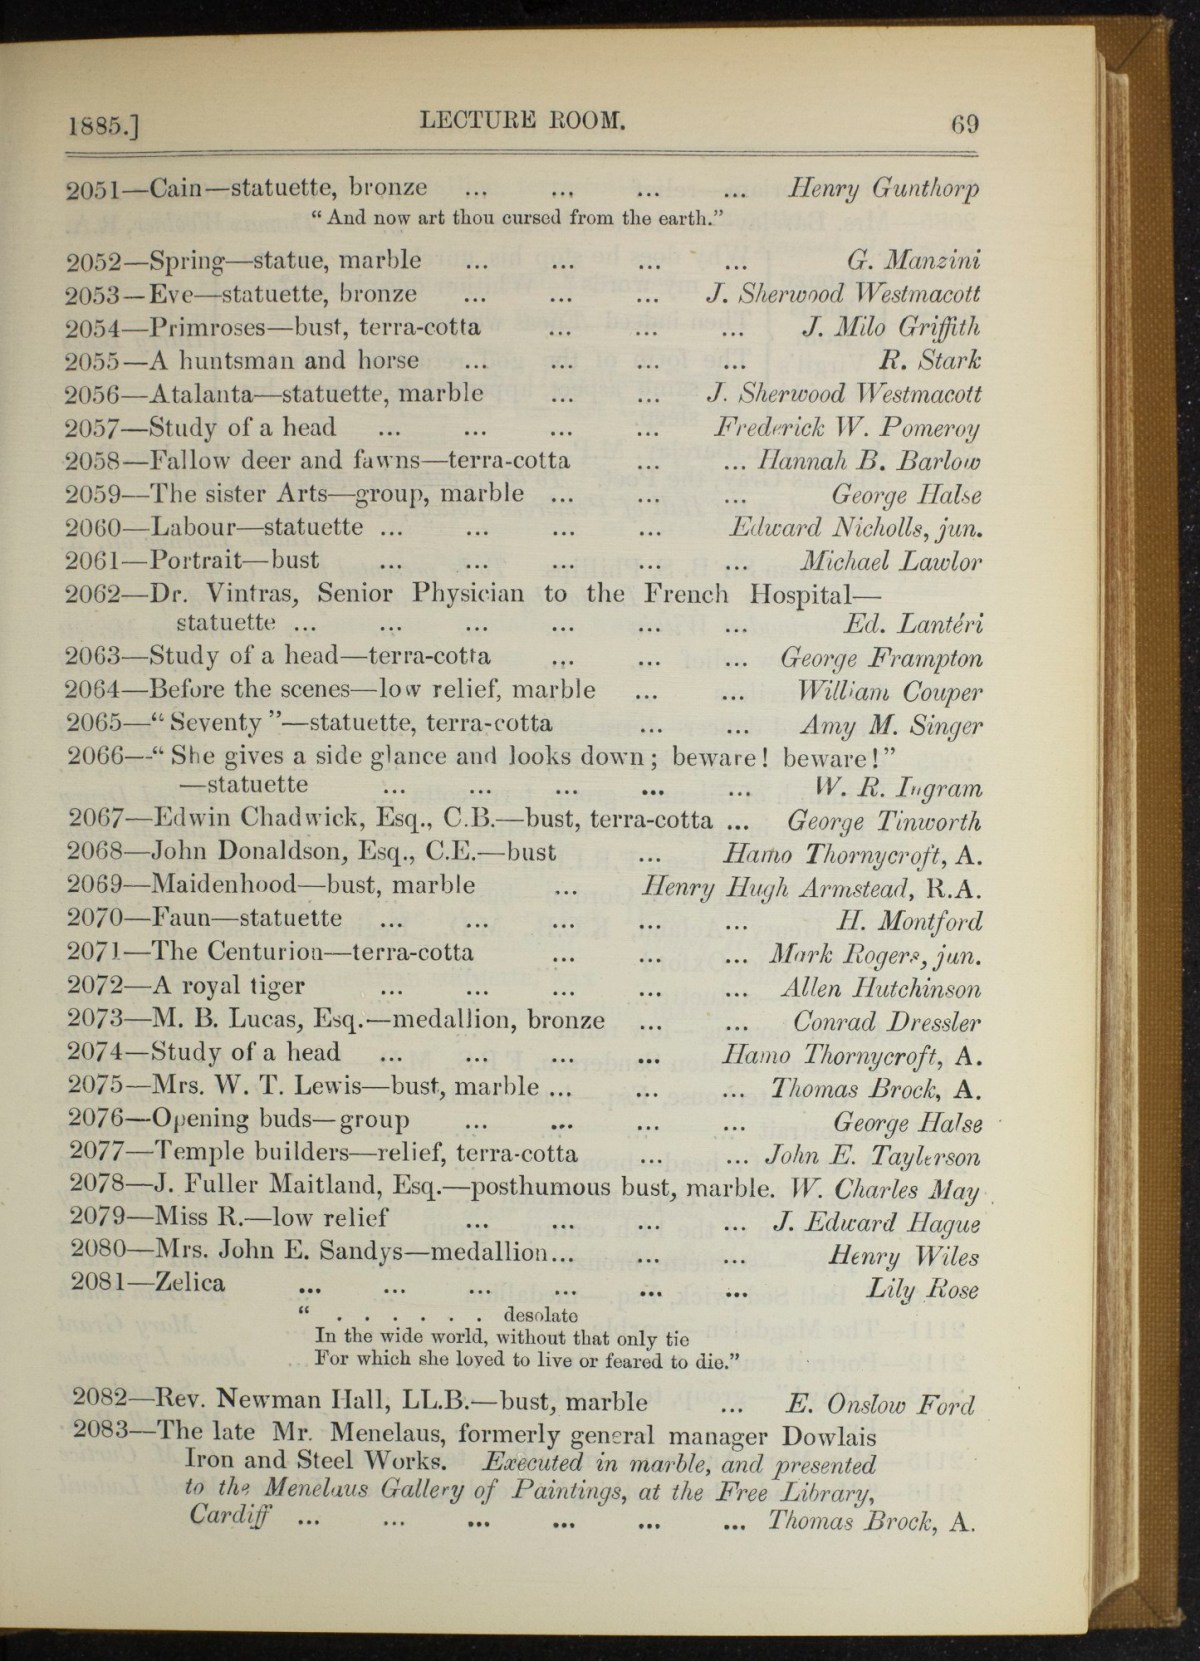 1885.] LECTURE ROOM. 69
2051—Cain—statuette, bronze ... ... ... ... Henry Gunthorp
“And now art thou cursed from the earth.”
2052—Spring—statue, marble ... ... ... ... G. Manzini
2053—Eve—statuette, bronze ... ... ... J. Sherwood Westmacott
2054—Primroses—bust, terra-cotta ... ... ... J. Milo Griffith
2055—A huntsman and horse ... ... ... ... R. Stark
2056—Atalanta—statuette, marble ... ... J. Sherwood Westmacott
2057—Study of a head ... ... ... ... Frederick W. Pomeroy
2058—Fallow deer and fawns—terra-cotta ... ... Hannah B. Barlow
2059—The sister Arts—group, marble ... ... ... George Halse
2060—Labour—statuette ... ... ... ... Edward Nicholls, jun.
2061—Portrait—bust ... ... ... ... ... Michael Lawlor
2062—Dr. Vintras, Senior Physician to the French Hospital—
statuette ... ... ... ... ... ... Ed. Lantéri
2063—Study of a head—terra-cotta ... ... ... George Frampton
2064—Before the scenes—low relief, marble ... ... William Couper
2065—“Seventy”—statuette, terra-cotta ... ... Amy M. Singer
2066—“She gives a side glance and looks down; beware! beware!”
—statuette ... ... ... ... ... W. R. Ingram
2067—Edwin Chadwick, Esq., C.B.—bust, terra-cotta ... George Tinworth
2068—John Donaldson, Esq., C.E.—bust ... Hamo Thornycroft, A.
2069—Maidenhood—bust, marble ... Henry Hugh Armstead, R.A.
2070—Faun—statuette ... ... ... ... ... H. Montford
2071—The Centurion—terra-cotta ... ... ... Mark Rogers, jun.
2072—A royal tiger ... ... ... ... ... Allen Hutchinson
2073—M. B. Lucas, Esq.—medallion, bronze ... ... Conrad Dressler
2074—Study of a head ... ... ... ... Hamo Thornycroft, A.
2075—Mrs. W. T. Lewis—bust, marble ... ... ... Thomas Brock, A.
2076—Opening buds—group ... ... ... ... George Halse
2077—Temple builders—relief, terra-cotta ... ... John E. Taylerson
2078—J. Fuller Maitland, Esq.—posthumous bust, marble. W. Charles May
2079—Miss R.—low relief ... ... ... ... J. Edward Hague
2080—Mrs. John E. Sandys—medallion... ... ... Henry Wiles
2081—Zelica ... ... ... ... ... ... Lily Rose
“ . . . . . . desolate
In the wide world, without that only tie
For which she loved to live or feared to die.”
2082—Rev. Newman Hall, LL.B.—bust, marble ... E. Onslow Ford
2083—The late Mr. Menelaus, formerly general manager Dowlais
Iron and Steel Works. Executed in marble, and presented
to the Menelaus Gallery of Paintings, at the Free Library,
Cardiff ... ... ... ... ... ... Thomas Brock, A.